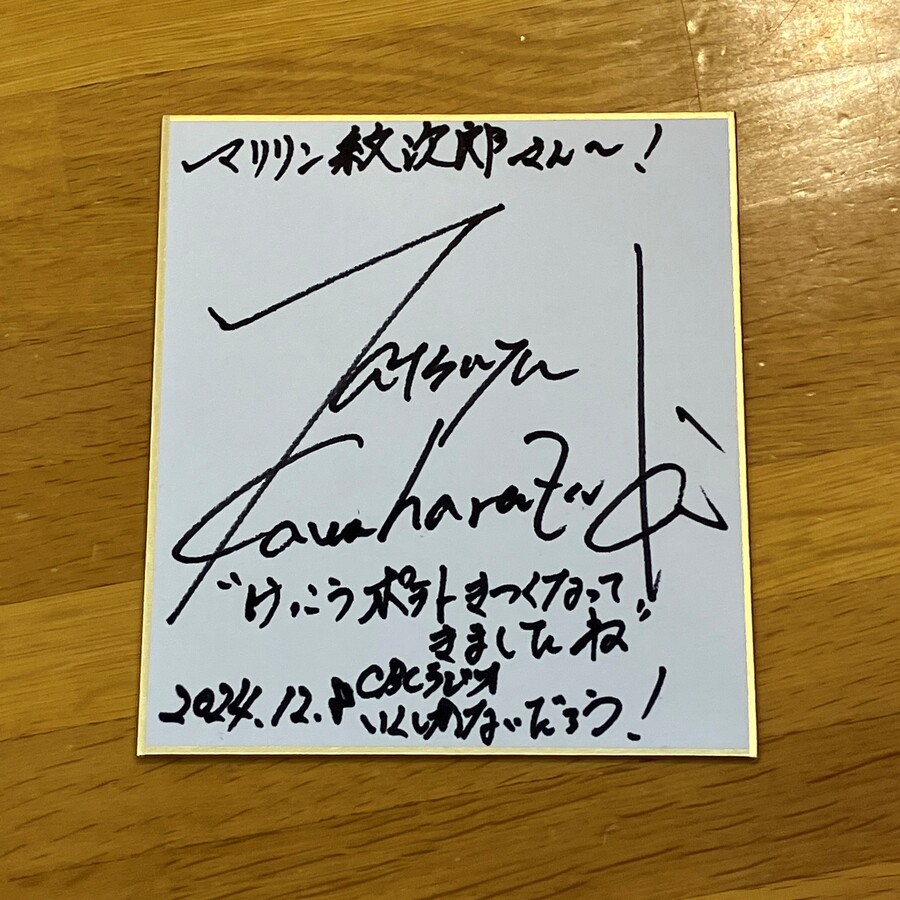 マリリン紋次郎さん〜!
Tatsuya
Kawaharazuki
"けっこうポテトきつくなって
きましたね"
CBCラジオ
2024.12.8 いくしかないだろう!